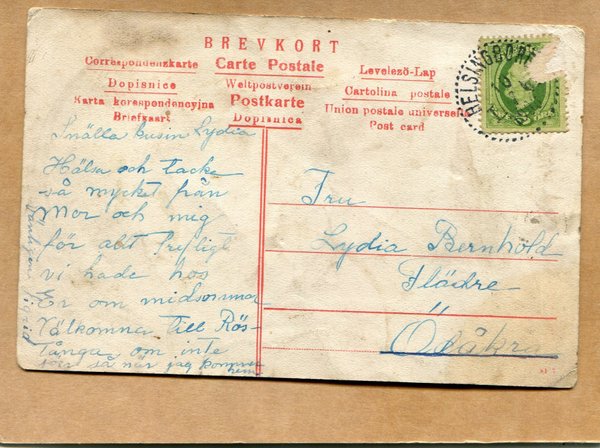 BREVKORT
Correspondenzkarte Carte Postale Levelező-Lap
Dopisnice Weltpostverein Cartolina postale
Karta korespondencyjna Postkarte Union postale universelle
Briefkaart Dopisnica Post card
HELSINGBORG
Snälla kusin Lydia
Hälsa och tacka
så mycket från
Mor och mig
för alt trefligt
vi hade hos
Er om midsommar
Välkomna till Rös-
tånga om inte
förr så när jag kommer
hem
Fru
Lydia Bernhold
Flödre
Ödåkra